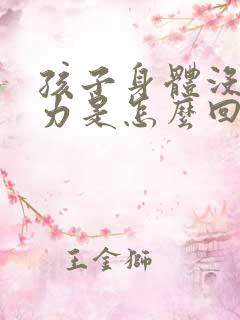 孩子身體沒
力是怎麼回
王金獅